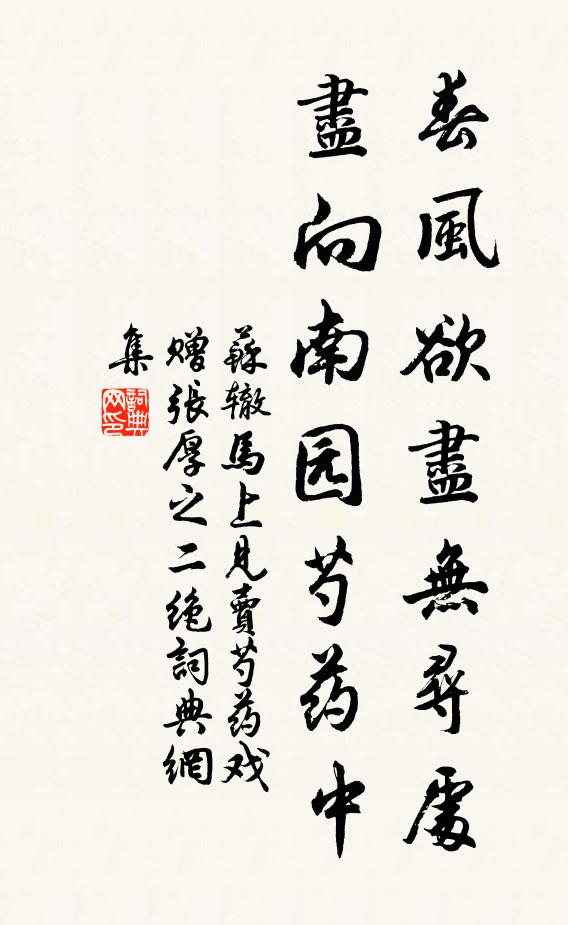 春風欲盡無尋處
盡向南园芍药中
蘇辙馬上見賣芍药戏
赠張厚之二绝詞典網
集
詞典
网印